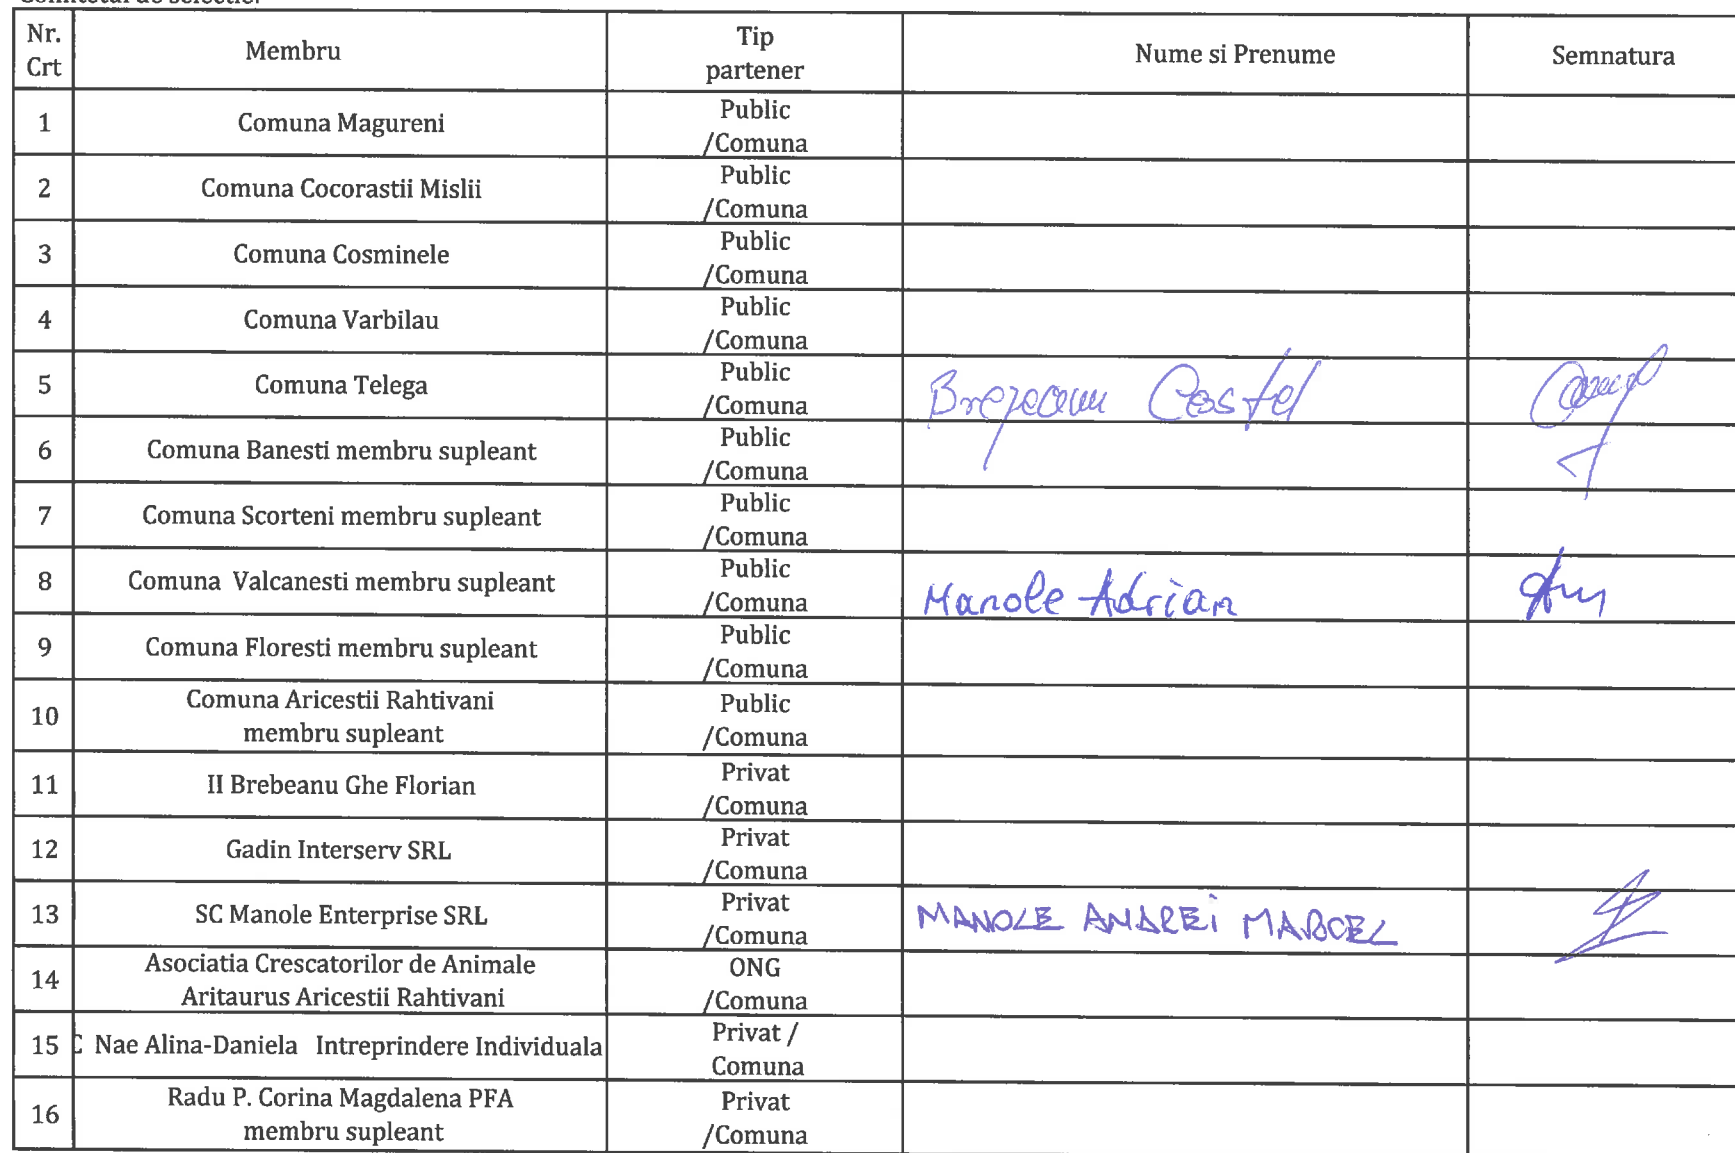 Nr. Crt Membru Tip partener Nume si Prenume Semnatura
1 Comuna Magureni Public /Comuna
2 Comuna Cocorastii Mislii Public /Comuna
3 Comuna Cosminele Public /Comuna
4 Comuna Varbilau Public /Comuna
5 Comuna Telega Public /Comuna Costel
6 Comuna Banesti membru supleant Public /Comuna
7 Comuna Scorteni membru supleant Public /Comuna
8 Comuna Valcanesti membru supleant Public /Comuna Manole Adrian
9 Comuna Floresti membru supleant Public /Comuna
10 Comuna Aricestii Rahtivani membru supleant Public /Comuna
11 II Brebeanu Ghe Florian Privat /Comuna
12 Gadin Interserv SRL Privat /Comuna
13 SC Manole Enterprise SRL Privat /Comuna MANOLE ANDREI MARCEL
14 Asociatia Crescatorilor de Animale Aritaurus Aricestii Rahtivani ONG /Comuna
15 Nae Alina-Daniela Intreprindere Individuala Privat / Comuna
16 Radu P. Corina Magdalena PFA membru supleant Privat /Comuna